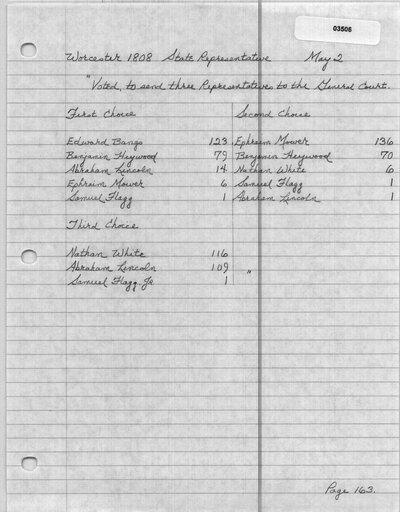 03506
Worcester 1808 State Representative May 2
"Voted, to send three Representatives to the General Court.
First Choice
Edward Bangs 123
Benjamin Heywood 79
Abraham Lincoln 14
Ephraim Mower 6
Samuel Flagg 1
Second Choice
Ephraim Mower 136
Benjamin Heywood 70
Nathan White 6
Samuel Flagg 1
Abraham Lincoln 1
Third Choice
Nathan White 116
Abraham Lincoln 109 "
Samuel Flagg Jr 1
Page 163.